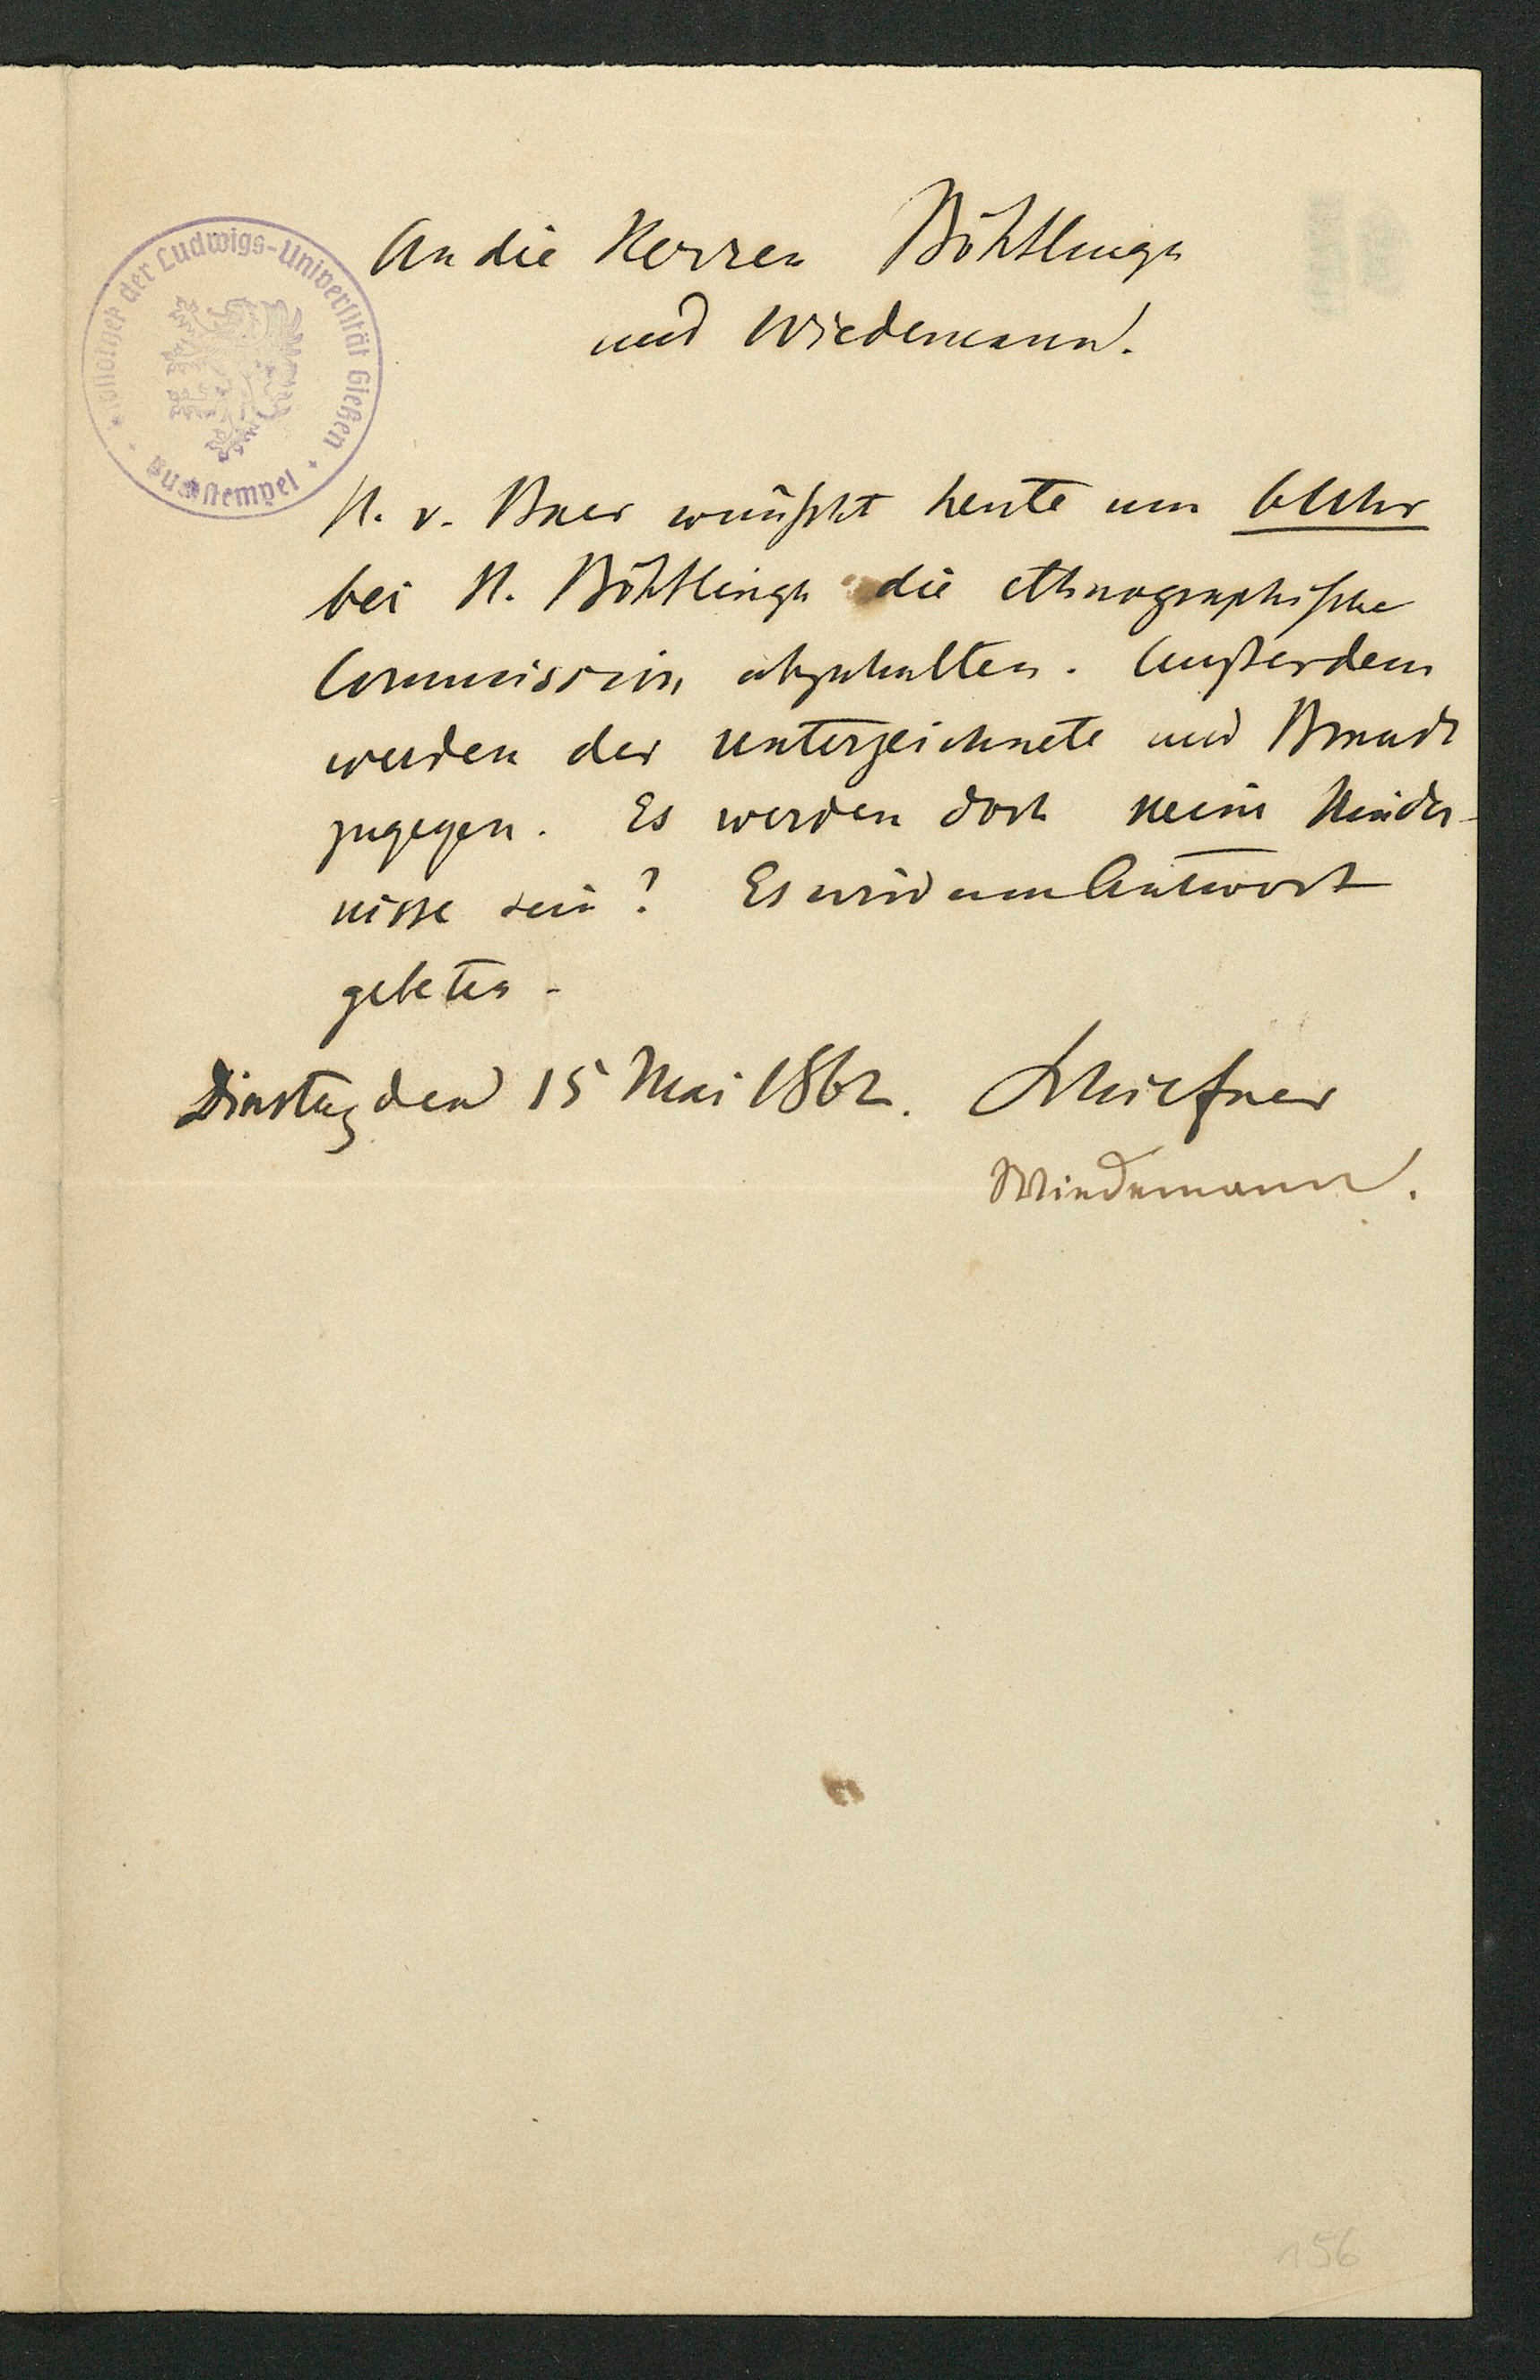 An die Herren Böhtlingk
und Wiedemann.
Bibliothek der Ludwigs-Universität Gießen
Buchstempel
H. v. Baer wünscht heute um 6 Uhr
bei H. Böhtlingk die ethnographische
Commission abzuhalten. Außerdem
werden der Unterzeichnete und Brandt
zugegen. Es werden doch keine Hinder-
nisse sein? Es wird um Antwort
gebeten.
Dinstag den 15 Mai 1862. Schiefner
Wiedemann.
156